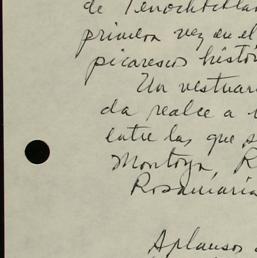 de Tenochtitlan
primera vez en el
picarescos histór
Un vestuari
da realce a
entre las que s
Montoya, R
Rosamaria
Aplausos